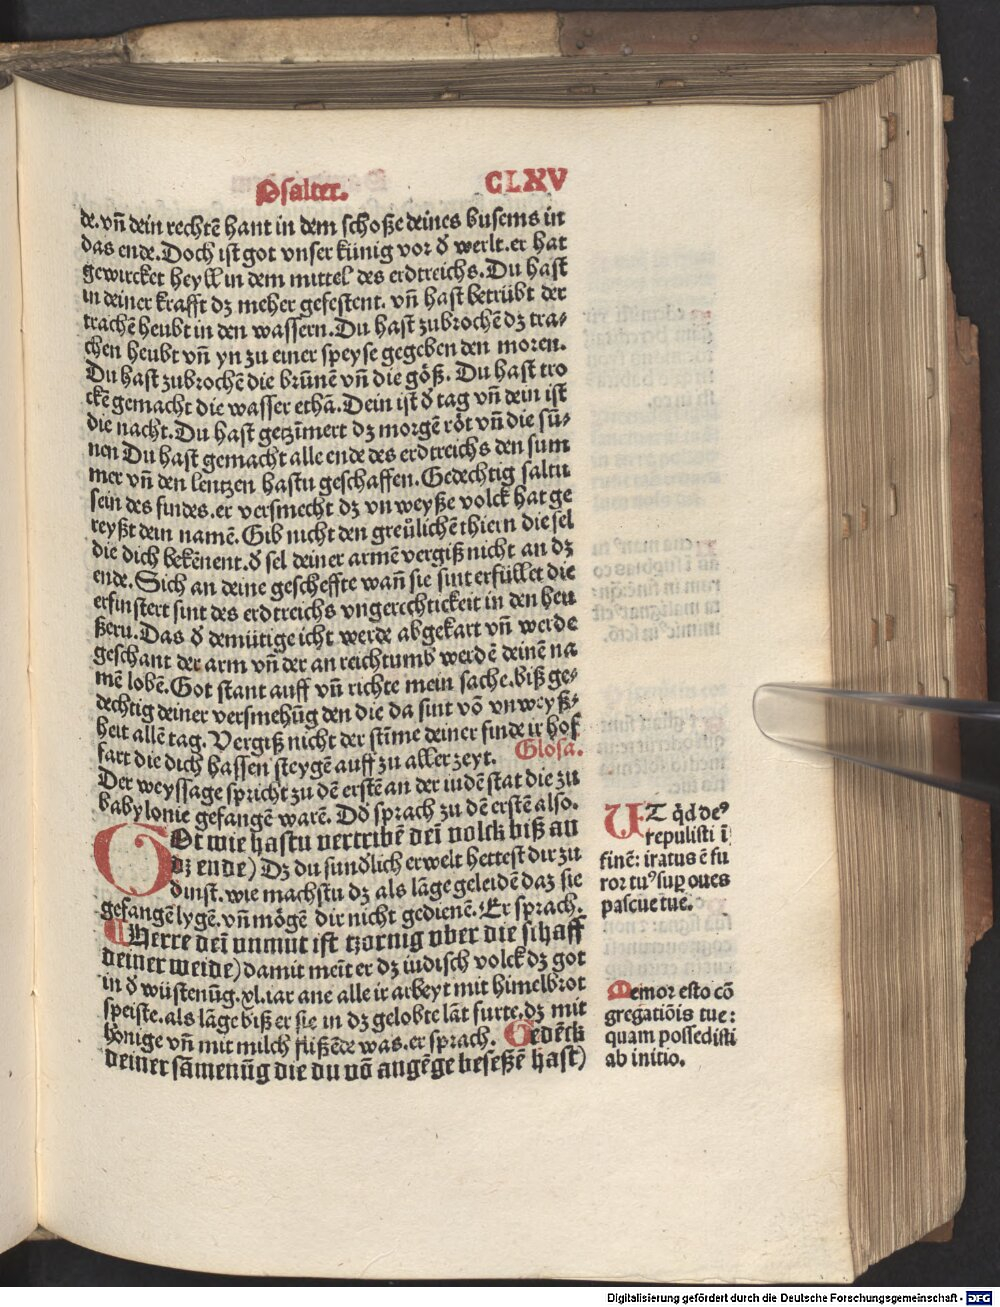 Psalter. CLXV
de. vñ dein rechtē hant in dem schoße deines busems in
das ende. Doch ist got vnser künig vor d̕ werlt. er hat
gewircket heyll in dem mittel des erdtreichs. Du hast
in deiner krafft dz meher gefestent. vñ hast betrübt der
trachē heubt in den wassern. Du hast zubrochē dz tra-
chen heubt vñ yn zu einer speyse gegeben den moren.
Du hast zubrochē die brūnē vñ die göß. Du hast tro
ckē gemacht die wasser ethā. Dein ist d̕ tag vñ dein ist
die nacht. Du hast getzīmert dz morgē röt vñ die sū-
nen Du hast gemacht alle ende des erdtreichs den sum
mer vñ den lentzen hastu geschaffen. Gedechtig saltu
sein des findes. er versmecht dz vnweyße volck hat ge
reyßt dein namē. Gib nicht den greülichē thiern die sel
die dich bekēnent. d̕ sel deiner armē vergiß nicht an dz
ende. Sich an deine gescheffte wañ sie sint erfüllet die
erfinstert sint des erdtreichs vngerechtickeit in den heu
ßeru. Das d̕ demütige icht werde abgekart vñ werde
geschant der arm vñ der an reichtumb werdē deinē na
mē lobē. Got stant auff vñ richte mein sache. biß ge-
dechtig deiner versmehūg den die da sint vō vnweyß-
heit allē tag. Vergiß nicht der stīme deiner finde ir hof
fart die dich hassen steygē auff zu aller zeyt. Glosa.
Der weyssage spricht zu dē erstē an der iudē stat die zu
babylonie gefangē warē. Dō sprach zu dē erstē also.
GOt wie hastu vertribē dei volck biß an
dz ende) Dz du sundlich erwelt hettest dir zu
dinst. wie machstu dz als lāge geleidē daz sie
gefangē lygē. vñ mögē dir nicht gedienē. Er sprach.
Herre dei vnmut ist tzornig vber die schaff
deiner weide) damit meīt er dz iudisch volck dz got
in d̕ wüstenūg. xl. iar ane alle ir arbeyt mit himelbrot
speiste. als lāge biß er sie in dz gelobte lāt furte. dz mit
hönige vñ mit milch flißēde was. er sprach. Gedēck
deiner sāmenūg die du vō angēge beseßē hast)
UT q̇d deꝰ
repulisti ī
finē: iratus ē fu
ror tuꝰ suꝑ oues
pascue tue.
Memor esto cō
gregatiōis tue:
quam possedisti
ab initio.
Digitalisierung gefördert durch die Deutsche Forschungsgemeinschaft - DFG